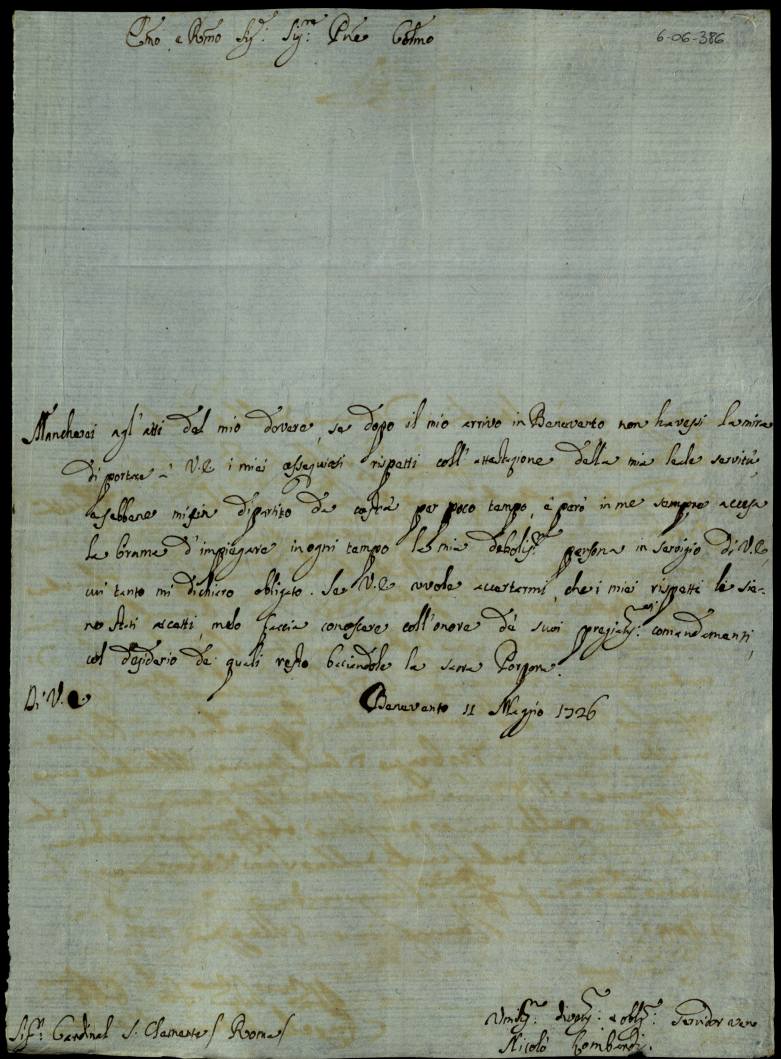 Em̃o, e Rm̃o Sig.r Sig.re P̃ne Col̃mo
6-06-386
Mancherei agl'atti del mio dovere, se dopo il mio arrivo in Benevento non havessi la mira
di portare à V.E. i miei ossequiosi rispetti coll'attestazione della mia leale servitù,
e sebbene mi sia dipartito da costà per poco tempo, è però in me sempre accesa
la brama d'impiegare in ogni tempo la mia debolis.ma persona in servigio di V.E.,
cui tanto mi dichiaro obligato. Se V.E. vuole accertarmi, che i miei rispetti le sia-
no stati accetti, melo faccia conoscere coll'onore de' suoi pregiatis.mi comandamenti,
col desiderio de quali resto baciandole la sacra Porpora.
Di V.E.
Benevento 11 Maggio 1726
Sig.r Cardinal S. Clemente / Roma /
Umilis.mo divotis.mo e oblig.mo servidor vero
Nicolò Lombardi.